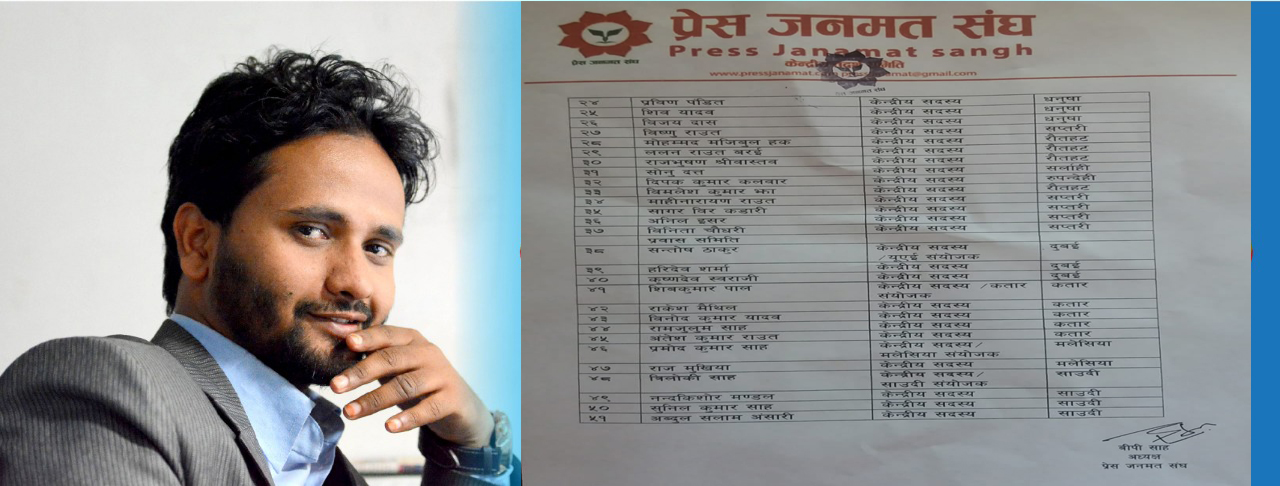 प्रेस जनमत संघ
Press Janamat sangh
प्रेस जनमत संघ
केन्द्रीय
www.pressjanamat.com
२४ प्रविण पंडित केन्द्रीय सदस्य धनुषा
२५ शिव यादव केन्द्रीय सदस्य धनुषा
२६ विजय दास केन्द्रीय सदस्य धनुषा
२७ विष्णु राउत केन्द्रीय सदस्य सप्तरी
२८ मोहम्मद मजिबुल हक केन्द्रीय सदस्य रौतहट
२९ ललन राउत बरई केन्द्रीय सदस्य रौतहट
३० राजभुषण श्रीवास्तव केन्द्रीय सदस्य रौतहट
३१ सोनु दत्त केन्द्रीय सदस्य सर्लाही
३२ दिपक कुमार कलवार केन्द्रीय सदस्य रुपन्देही
३३ बिमलेश कुमार झा केन्द्रीय सदस्य रौतहट
३४ माहीनारायण राउत केन्द्रीय सदस्य सप्तरी
३५ सागर विर कडारी केन्द्रीय सदस्य सप्तरी
३६ अनिल इसर केन्द्रीय सदस्य सप्तरी
३७ विनिता चौधरी केन्द्रीय सदस्य सप्तरी
प्रवास समिति
३८ सन्तोष ठाकुर केन्द्रीय सदस्य दुबई
/युएई संयोजक
३९ हरिदेव शर्मा केन्द्रीय सदस्य दुबई
४० कृष्णदेव स्वराजी केन्द्रीय सदस्य दुबई
४१ शिवकुमार पाल केन्द्रीय सदस्य /कतार कतार
संयोजक
४२ राकेश मैथिल केन्द्रीय सदस्य कतार
४३ विनोद कुमार यादव केन्द्रीय सदस्य कतार
४४ रामजुलुम साह केन्द्रीय सदस्य कतार
४५ अतेश कुमार राउत केन्द्रीय सदस्य कतार
४६ प्रमोद कुमार साह केन्द्रीय सदस्य/ मलेसिया
मलेसिया संयोजक
४७ राज मुखिया केन्द्रीय सदस्य मलेसिया
४८ त्रिलोकी साह केन्द्रीय सदस्य/ साउदी
साउदी संयोजक
४९ नन्दकिशोर मण्डल केन्द्रीय सदस्य साउदी
५० सुनिल कुमार साह केन्द्रीय सदस्य साउदी
५१ अब्दुल सलाम अंसारी केन्द्रीय सदस्य साउदी
बीपी साह
अध्यक्ष
प्रेस जनमत संघ